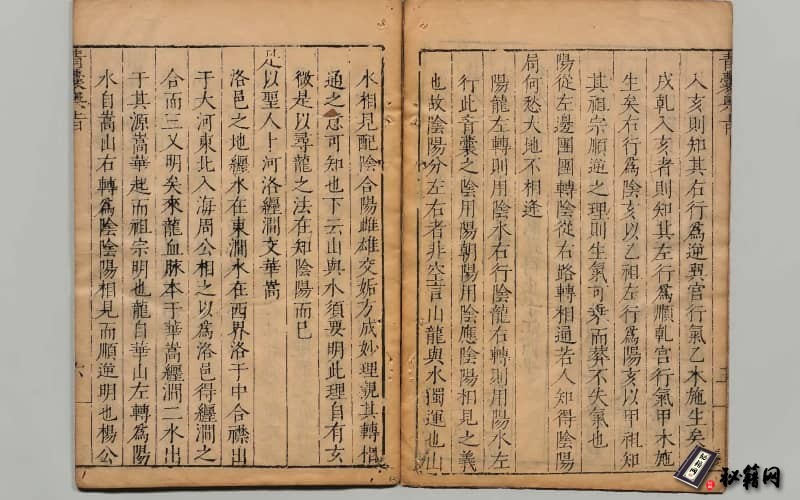 入亥則知其右行為逆巽宮行氣乙木施生矣
戌乹入亥者則知其左行為順乹宮行氣甲木施
生矣右行為陰亥以乙祖左行為陽亥以甲祖知
其祖宗順逆之理則生氣可乗而葬不失氣也
陽從左邊團團轉陰從右路轉相通若人知得陰陽
局何愁大地不相逢
陽龍左轉則用陰水右行陰龍右轉則用陽水左
行此青囊之陰用陽朝陽用陰應陰陽相見之義
也故陰陽分左右者非空言山龍與水獨運也山
水相見配陰合陽雌雄交姤方成妙理親其轉相
通之意可知也下云山與水須要明此理自有玄
微是以尋龍之法在知陰陽而已
是以聖人卜河洛纏澗文華嵩
洛邑之地纏水在東澗水在西界洛于中合襟出
于大河東北入海周公相之以為洛邑得纏澗之
合而三又明矣來龍血脉本于華嵩纏澗二水出
于其源嵩華起而祖宗明也龍自華山左轉為陽
水自嵩山右轉為陰陰陽相見而順逆明也楊公
青囊奧旨
六
秘籍网